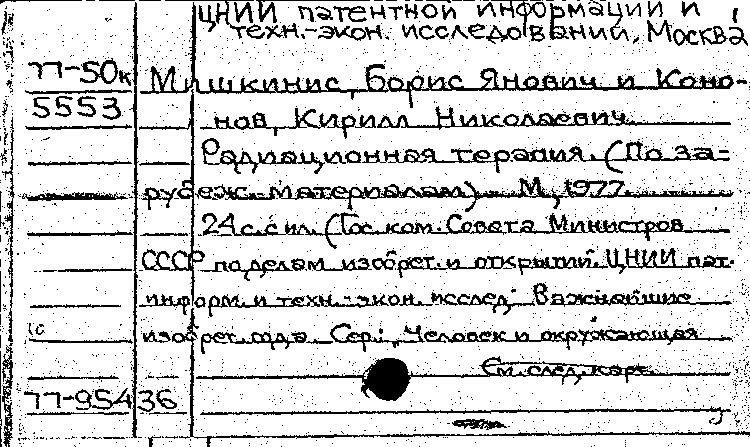 ЦНИИ патентной информации и
техн.-экон. исследований, Москва
77-50к Мишкинис, Борис Янович и Коно-
5553 нов, Кирилл Николаевич.
Радиационная терапия. (По за-
рубеж. материалам). М., 1977.
24 с. с ил. (Гос. ком. Совета Министров
СССР по делам изобрет. и открытий. ЦНИИ пат.
информ. и техн.-экон. исслед. Важнейшие
изобрет. года. Сер.: Человек и окружающая
См. след. карт.
77-954 36